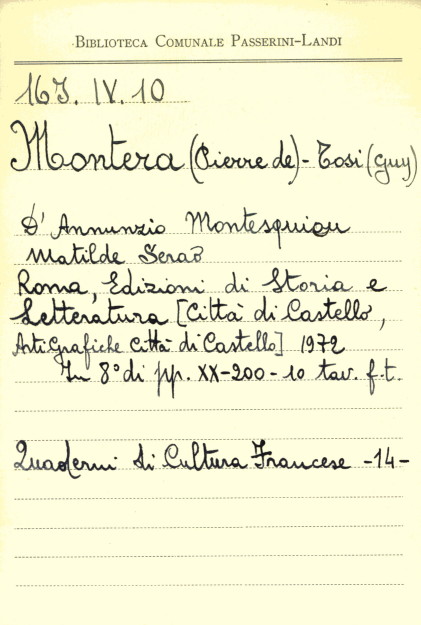 BIBLIOTECA COMUNALE PASSERINI-LANDI
16J. IV. 10
Montera (Pierre de) - Tosi (Guy)
D'Annunzio Montesquiou
Matilde Serao
Roma, Edizioni di Storia e
Letteratura [Città di Castello,
Arti Grafiche Città di Castello] 1972
In 8° di pp. XX-200-10 tav. f.t.
Quaderni di Cultura Francese -14-